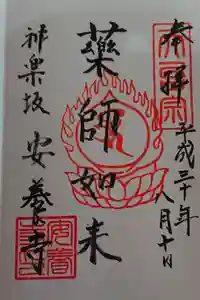 奉拝
平成三十年
八月十日
藥師如来
神楽坂
安養寺